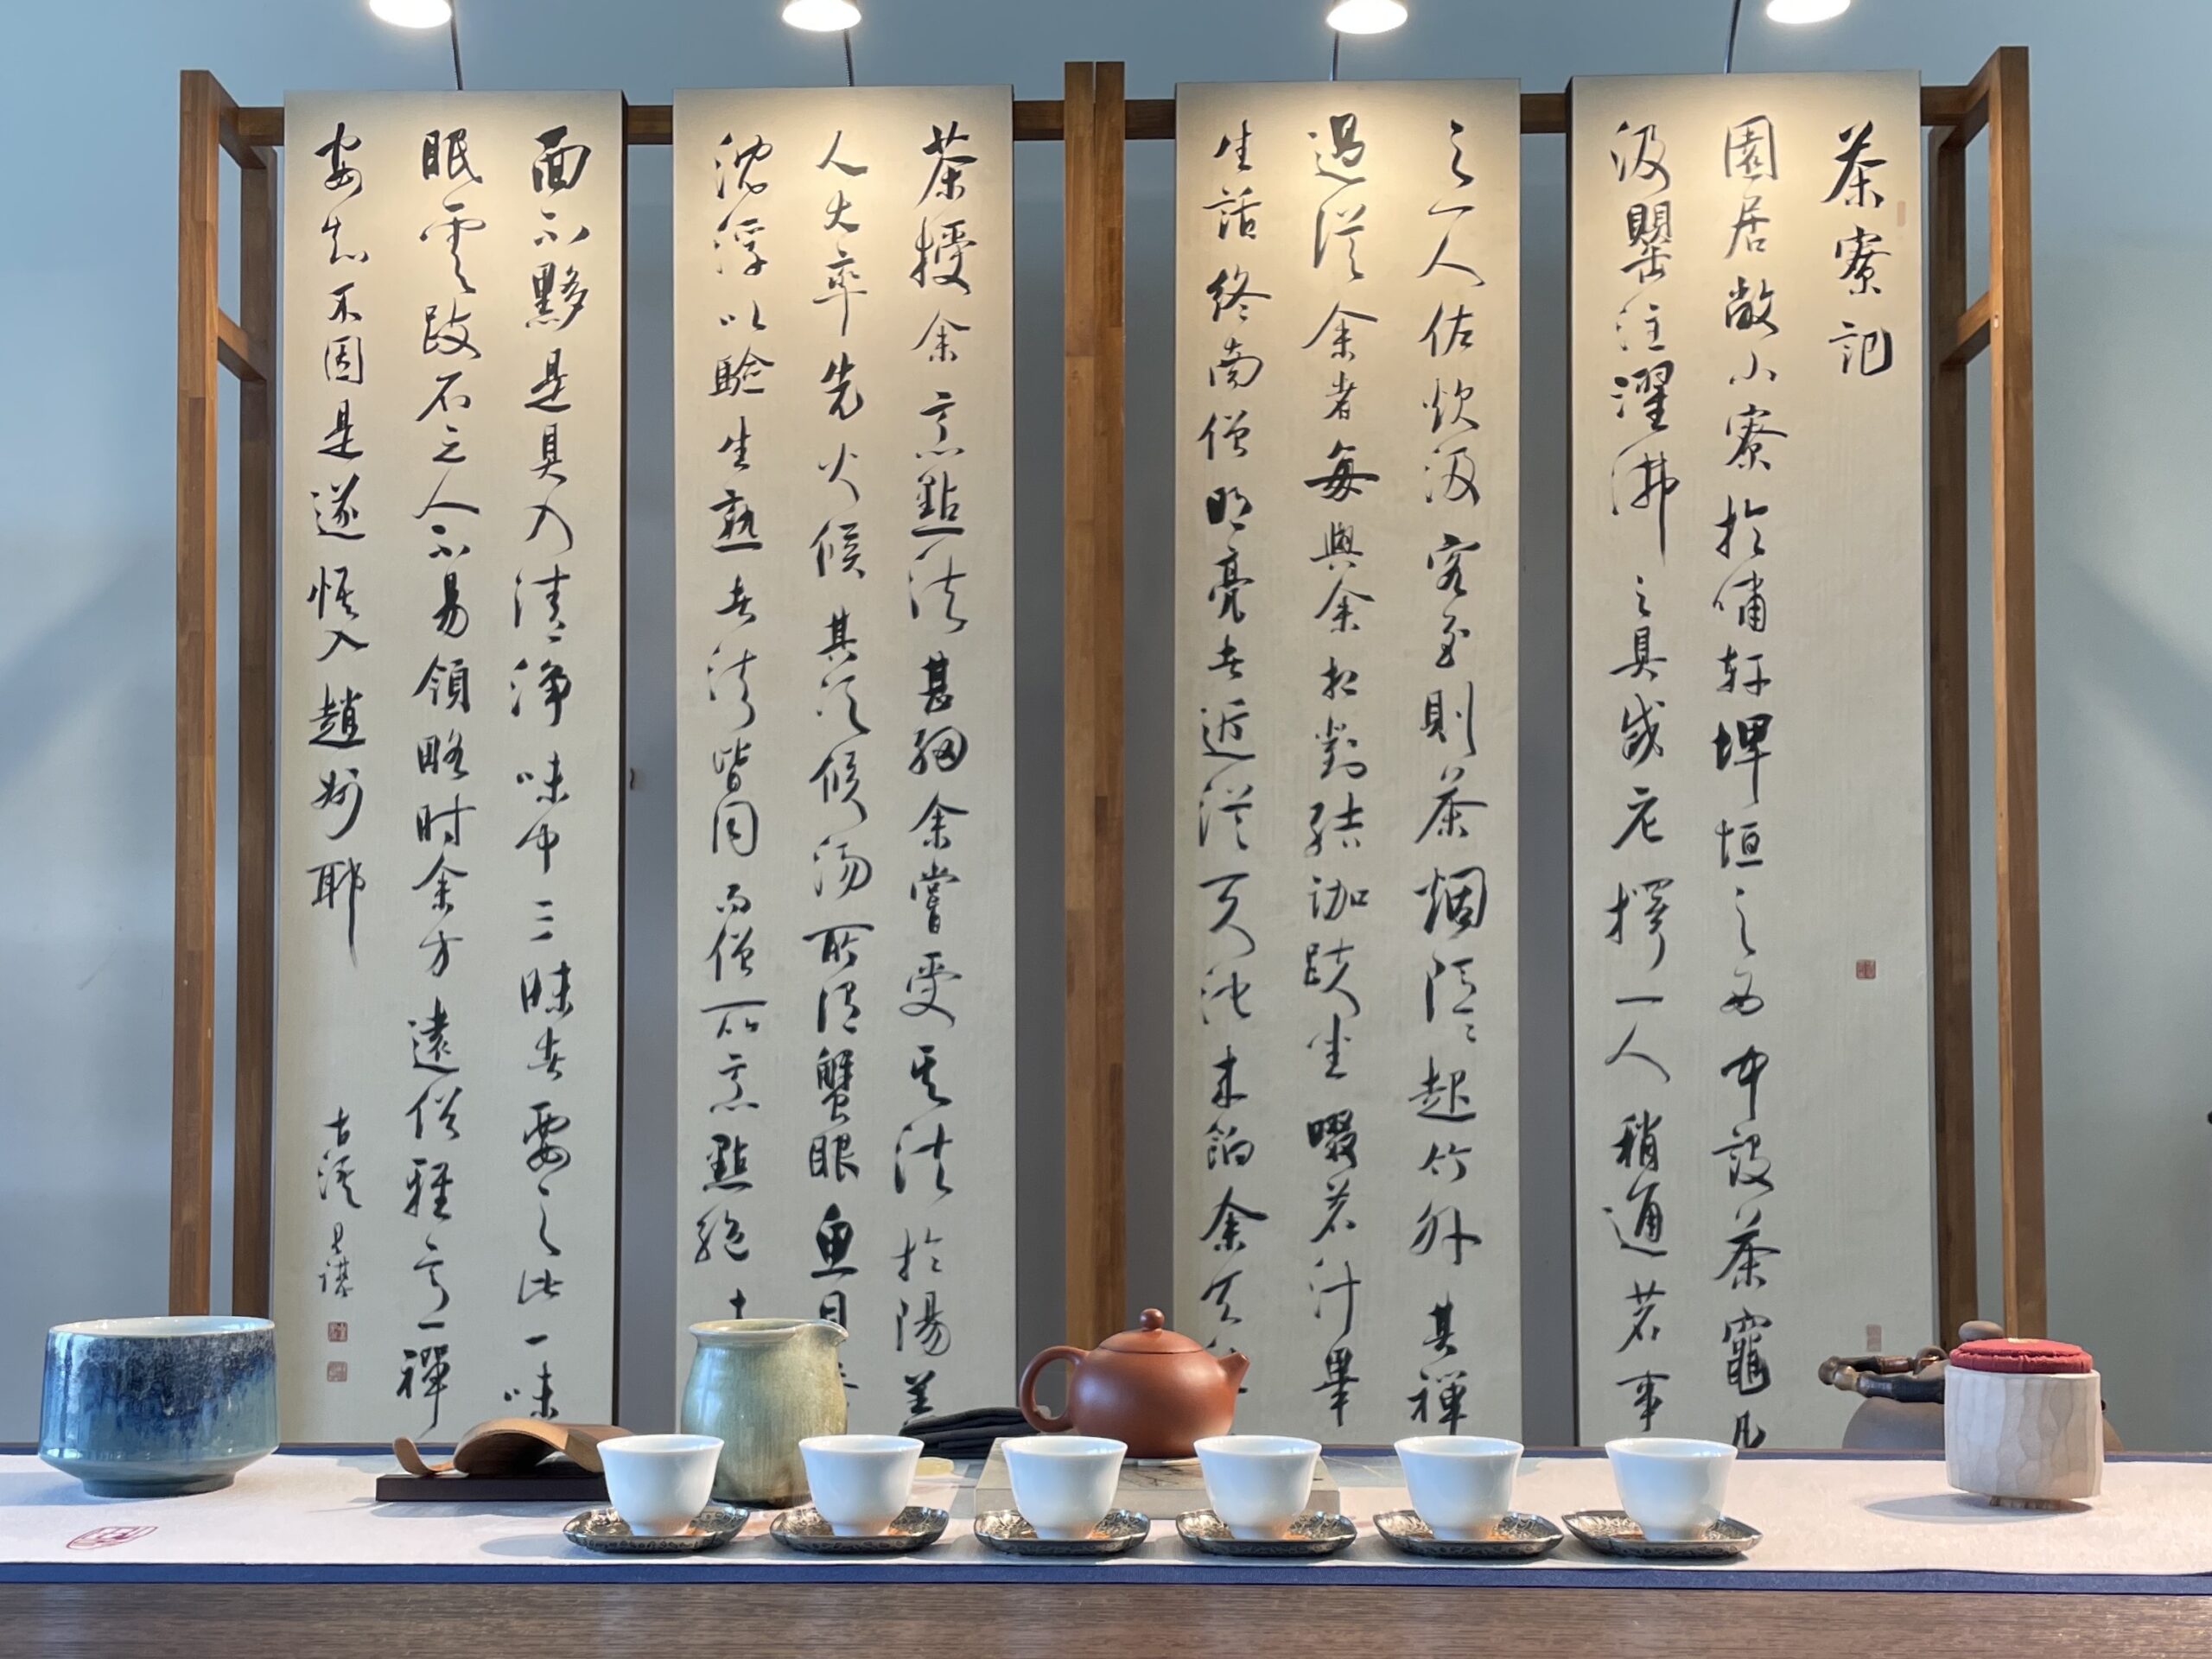 茶寮記
園居敞小寮於嘯軒埤垣之西中設茶竈凡
汲罌注濯沸之具咸庀擇一人稍通茗事
之一人佐炊汲客至則茶烟隱々起竹外其禪
過從余者每與余相對結跏趺坐啜茗汁舉
生話終南僧明亮者近從天池來餉余天
茶授余烹點法甚細余嘗受其法於陽羡
人大率先火候其次候湯所謂蟹眼魚目
沈浮以驗生熟者法皆同而僧所烹點絕
面不黟是具入清淨味中三昧者要之此一味
眠雲跂石之人不易領略时余方遠俗雅意禪
安知不因是遂悟入趙州耶
古溪